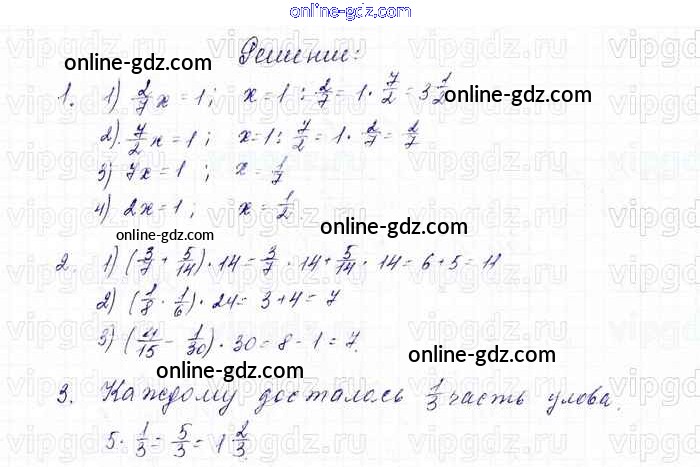 online-gdz.com
Решение:
online-gdz.com
1. 1) 2/7 x = 1; x = 1 : 2/7 = 1 · 7/2 = 3 1/2
online-gdz.com
2). 7/2 x = 1; x = 1 : 7/2 = 1 · 2/7 = 2/7
3) 7x = 1; x = 1/7
4) 2x = 1; x = 1/2.
online-gdz.com
online-gdz.com
2. 1) (3/7 + 5/14) · 14 = 3/7 · 14 + 5/14 · 14 = 6 + 5 = 11
2) (1/8 · 1/6) · 24 = 3 + 4 = 7
3) (4/15 - 1/30) · 30 = 8 - 1 = 7.
online-gdz.com
online-gdz.com
3. Каждому досталось 1/3 часть улова.
5 · 1/3 = 5/3 = 1 2/3
online-gdz.com
vipgdz.ru